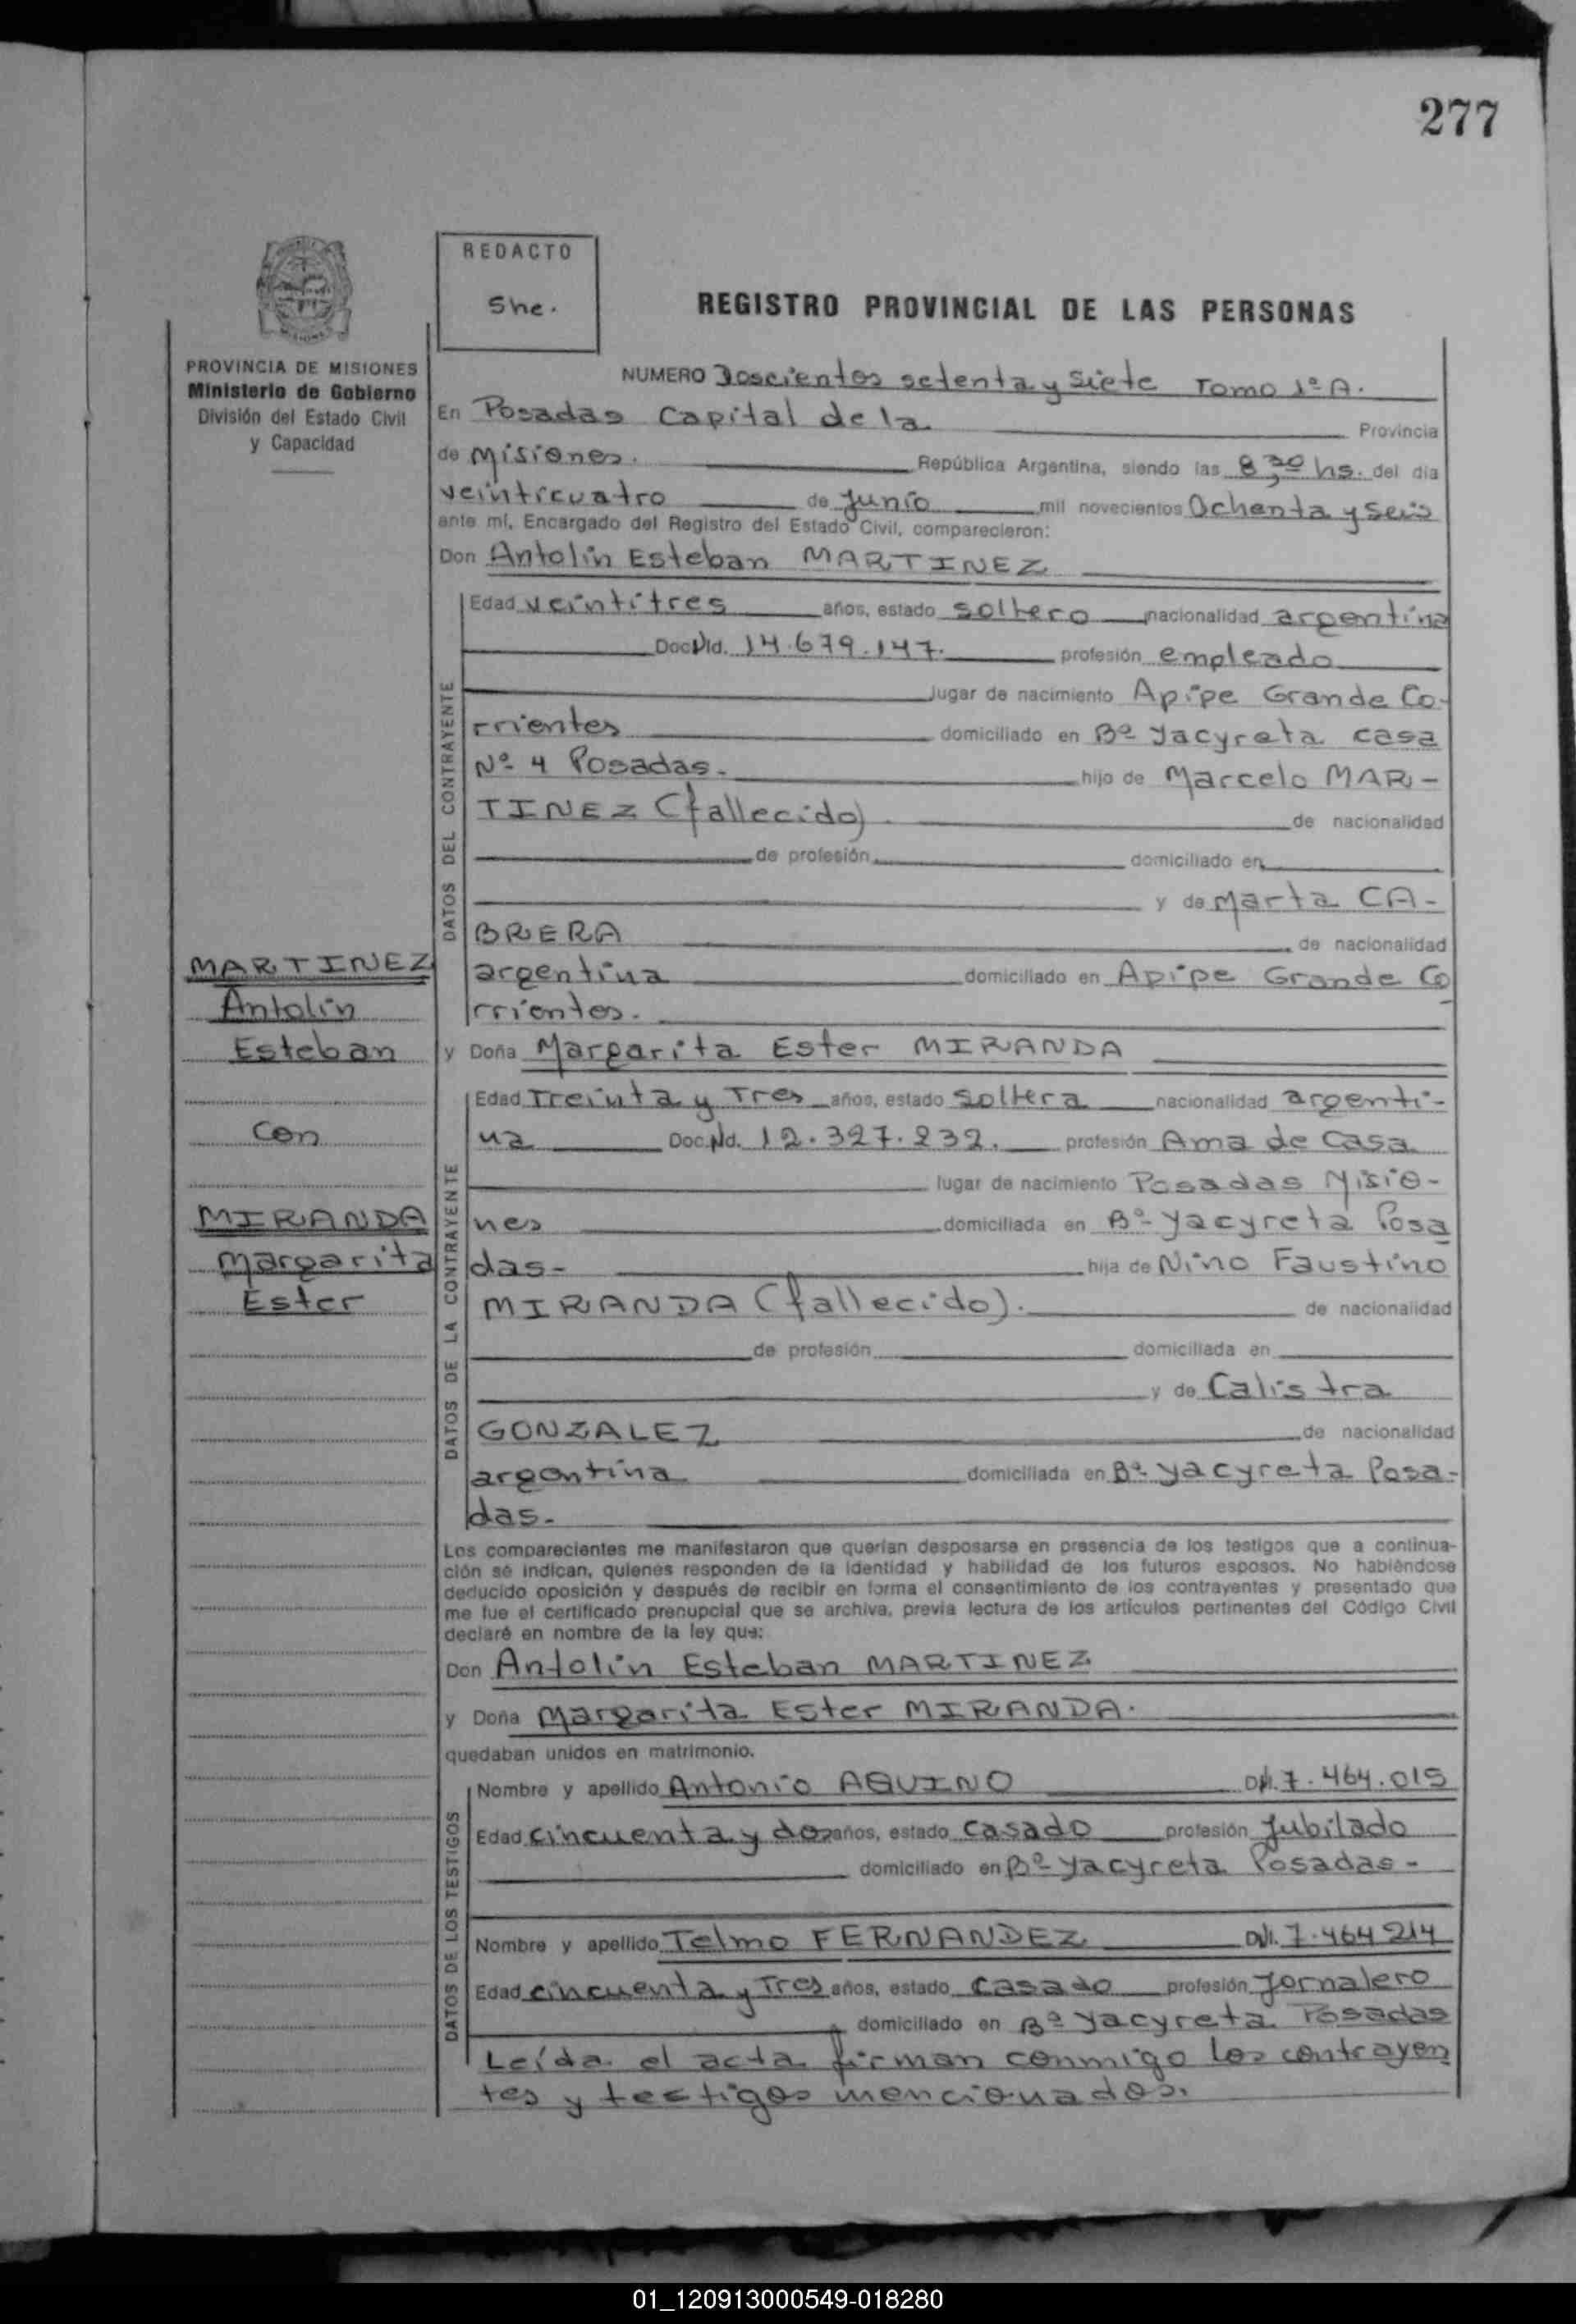 277
REDACTO
She.
REGISTRO PROVINCIAL DE LAS PERSONAS
PROVINCIA DE MISIONES
Ministerio de Gobierno
División del Estado Civil
y Capacidad
NUMERO Doscientos setenta y siete Tomo 1º A.
En Posadas Capital de la Provincia
de Misiones. República Argentina, siendo las 8,30 hs. del día
veinticuatro de Junio mil novecientos Ochenta y seis
ante mí, Encargado del Registro del Estado Civil, comparecieron:
Don Antolín Esteban MARTINEZ
DATOS DEL CONTRAYENTE
Edad veintitres años, estado soltero nacionalidad argentina
Doc. Nd. 14.679.147. profesión empleado
lugar de nacimiento Apipe Grande Co-
rrientes domiciliado en Bº Yacyreta casa
Nº 4 Posadas. hijo de Marcelo MAR-
TINEZ (fallecido). de nacionalidad
de profesión domiciliado en
y de Marta CA-
BRERA de nacionalidad
argentina domiciliado en Apipe Grande Co
rrientes.
y Doña Margarita Ester MIRANDA
MARTINEZ
Antolín
Esteban
con
MIRANDA
Margarita
Ester
DATOS DE LA CONTRAYENTE
Edad Treinta y Tres años, estado soltera nacionalidad argenti-
na Doc. Nd. 12.327.232. profesión Ama de Casa
lugar de nacimiento Posadas Misio-
nes domiciliada en Bº Yacyreta Posa
das- hija de Nino Faustino
MIRANDA (fallecido). de nacionalidad
de profesión domiciliada en
y de Calistra
GONZALEZ de nacionalidad
argentina domiciliada en Bº Yacyreta Posa-
das-
Los comparecientes me manifestaron que querían desposarse en presencia de los testigos que a continua-
ción se indican, quienes responden de la identidad y habilidad de los futuros esposos. No habiéndose
deducido oposición y después de recibir en forma el consentimiento de los contrayentes y presentado que
me fue el certificado prenupcial que se archiva, previa lectura de los artículos pertinentes del Código Civil
declaré en nombre de la ley que:
Don Antolín Esteban MARTINEZ
y Doña Margarita Ester MIRANDA.
quedaban unidos en matrimonio.
DATOS DE LOS TESTIGOS
Nombre y apellido Antonio AQUINO DNI. 7.464.015
Edad cincuenta y dos años, estado casado profesión Jubilado
domiciliado en Bº Yacyreta Posadas-
Nombre y apellido Telmo FERNANDEZ DNI. 7.464 214
Edad cincuenta y Tres años, estado casado profesión Jornalero
domiciliado en Bº Yacyreta Posadas
Leída el acta firman conmigo los contrayen
tes y testigos mencionados.
01_120913000549-018280